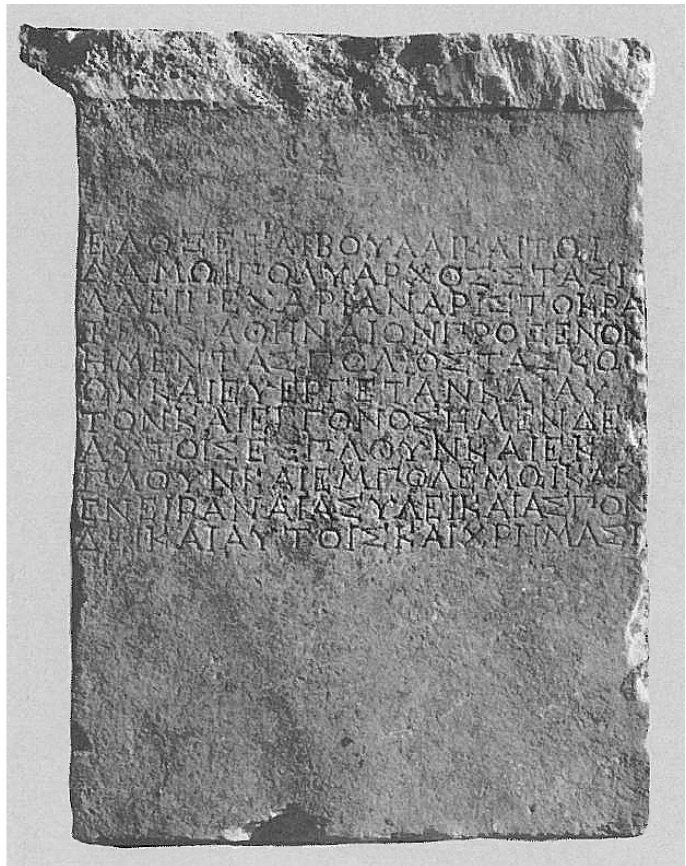 ΕΔΟΞΕΤΑΙΒΟΥΛΑΙΚΑΙΤΩΙ
ΔΑΜΩΙΠΟΛΥΑΡΧΟΣΣΤΑΣΙ
ΛΑΕΙΠΕΝΑΡΙΑΝΑΡΙΣΤΟΚΡΑ
ΤΕΥΣΑΘΗΝΑΙΟΝΠΡΟΞΕΝΟΝ
ΗΜΕΝΤΑΣΠΟΛΙΟΣΤΑΣΚΩ
ΩΝΚΑΙΕΥΕΡΓΕΤΑΝΚΑΙΑΥ
ΤΟΝΚΑΙΕΓΓΟΝΟΣΗΜΕΝΔΕ
ΑΥΤΟΙΣΕΣΠΛΟΥΝΚΑΙΕΚ
ΠΛΟΥΝΚΑΙΕΜΠΟΛΕΜΩΙΚΑΙ
ΕΝΕΙΡΑΝΑΙΑΣΥΛΕΙΚΑΙΑΣΠΟΝ
ΔΕΙΚΑΙΑΥΤΟΙΣΚΑΙΧΡΗΜΑΣΙ